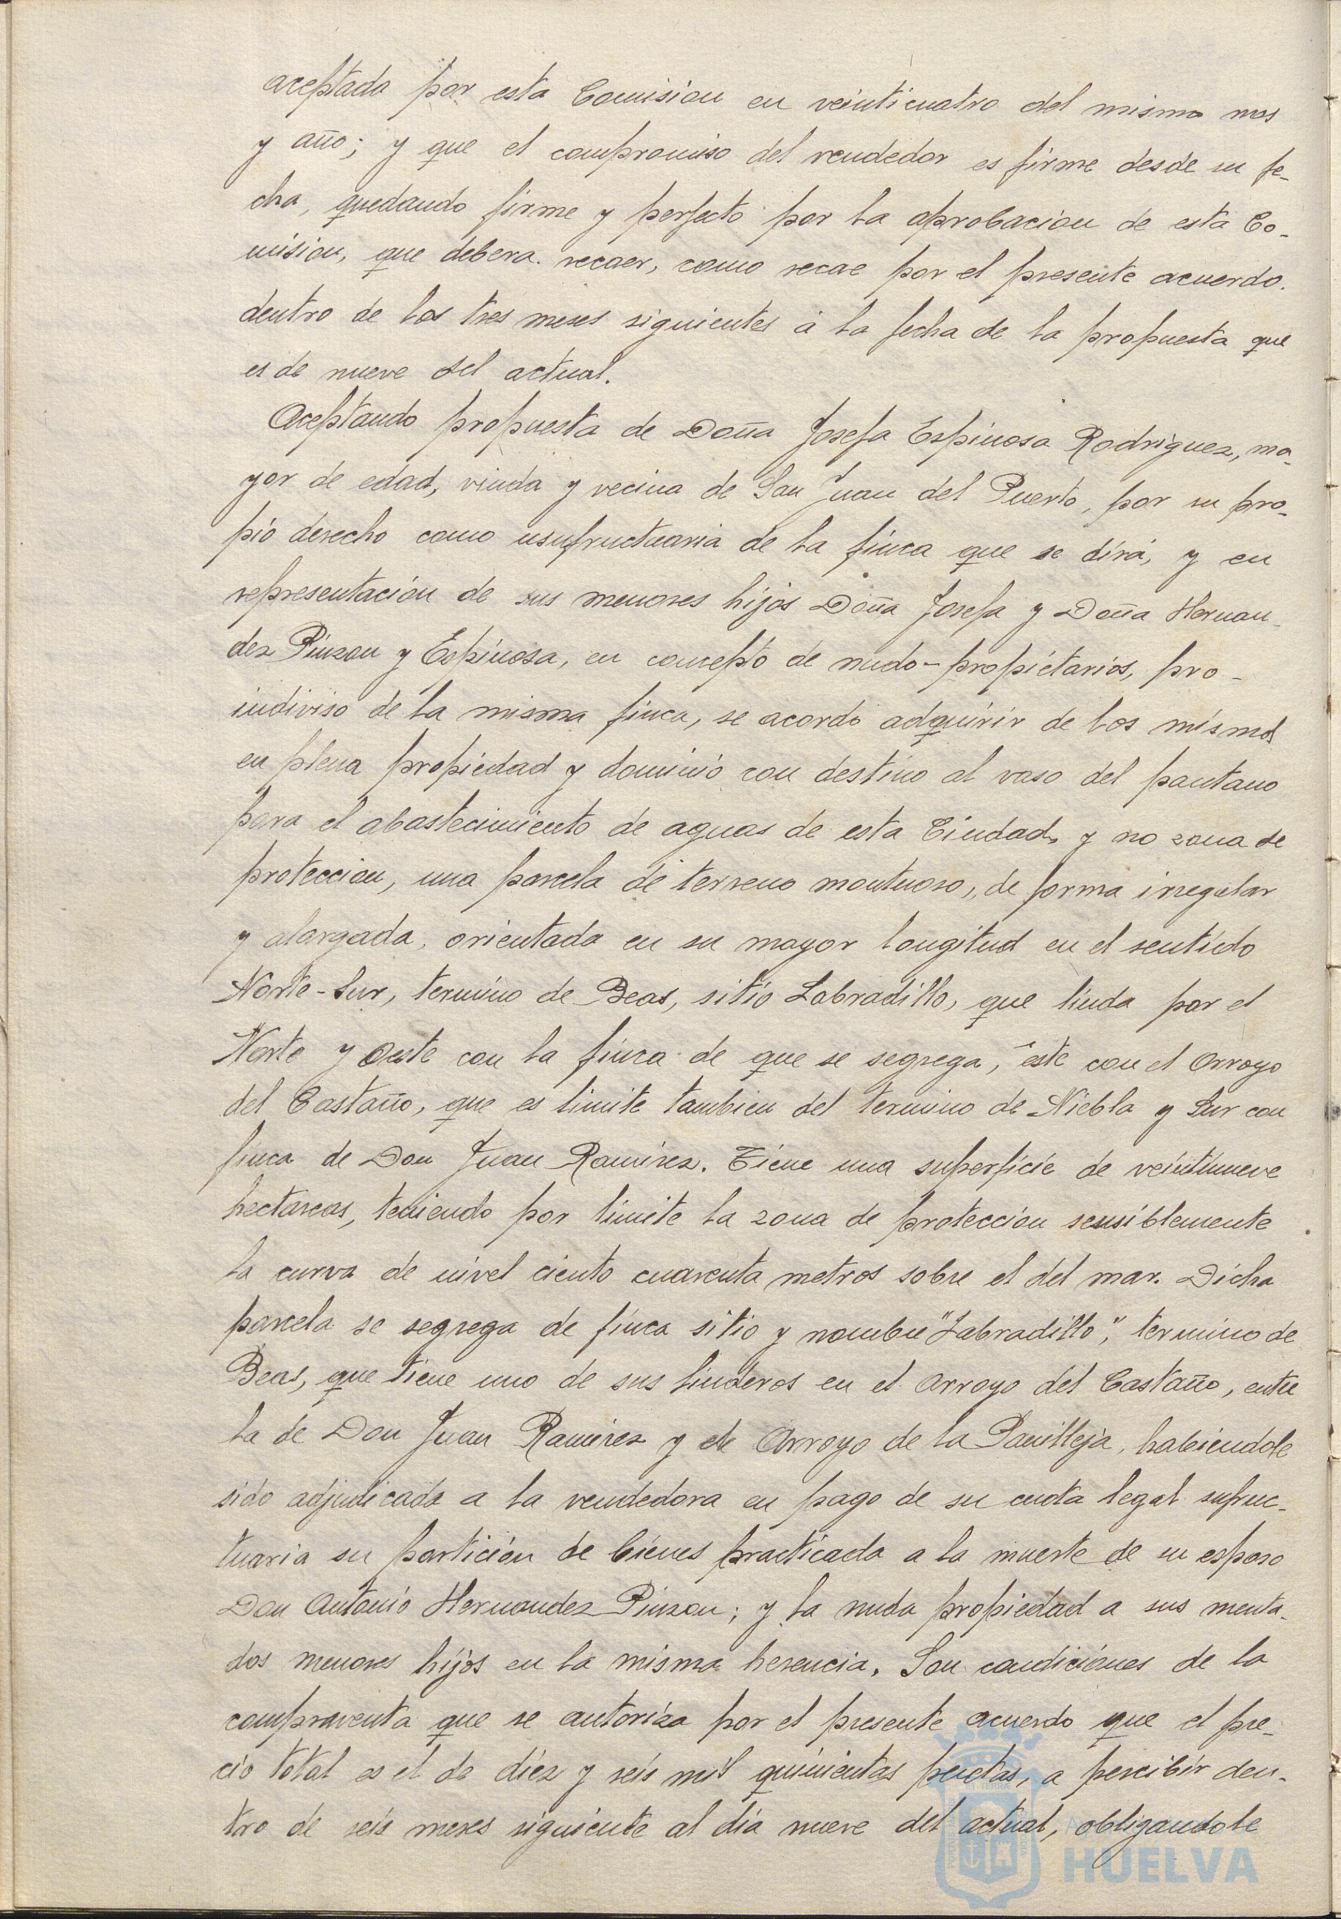 aceptada por esta Comision en veinticuatro del mismo mes
y año; y que el compromiso del vendedor es firme desde su fe-
cha, quedando firme y perfecto por la aprobacion de esta Co-
mision, que debera recaer, como recae por el presente acuerdo.
dentro de los tres meses siguientes á la fecha de la propuesta que
es de nueve del actual.
Aceptando propuesta de Doña Josefa Espinosa Rodriguez, ma-
yor de edad, viuda y vecina de San Juan del Puerto, por su pro-
pio derecho como usufructuaria de la finca que se dirá, y en
representación de sus menores hijos Doña Josefa y Doña Hernan-
dez Pinzon y Espinosa, en concepto de nudo-propietarios, pro-
indiviso de la misma finca, se acordo adquirir de los mismos
en plena propiedad y dominio con destino al vaso del pantano
para el abastecimiento de aguas de esta Ciudad, y no zona de
proteccion, una parcela de terreno montuoso, de forma irregular
y alargada, orientada en su mayor longitud en el sentido
Norte-Sur, termino de Beas, sitio Labradillo, que linda por el
Norte y Oeste con la finca de que se segrega, este con el Arroyo
del Castaño, que es limite tambien del termino de Niebla y Sur con
finca de Don Juan Ramirez. Tiene una superficie de veintinueve
hectareas, teniendo por limite la zona de proteccion sensiblemente
la curva de nivel ciento cuarenta metros sobre el del mar. Dicha
parcela se segrega de finca sitio y nombre "Labradillo", termino de
Beas, que tiene uno de sus linderos en el Arroyo del Castaño, entre
la de Don Juan Ramirez y el Arroyo de la Panilleja, habiendole
sido adjudicada a la vendedora en pago de su cuota legal sufruc-
tuaria su partición de bienes practicada a la muerte de su esposo
Don Antonio Hernandez Pinzon; y la nuda propiedad a sus menta-
dos menores hijos en la misma herencia. Son condiciones de la
compraventa que se autoriza por el presente acuerdo que el pre-
cio total es el de diez y seis mil quinientas pesetas, a percibir den-
tro de seis meses siguiente al dia nueve del actual, obligandole
HUELVA